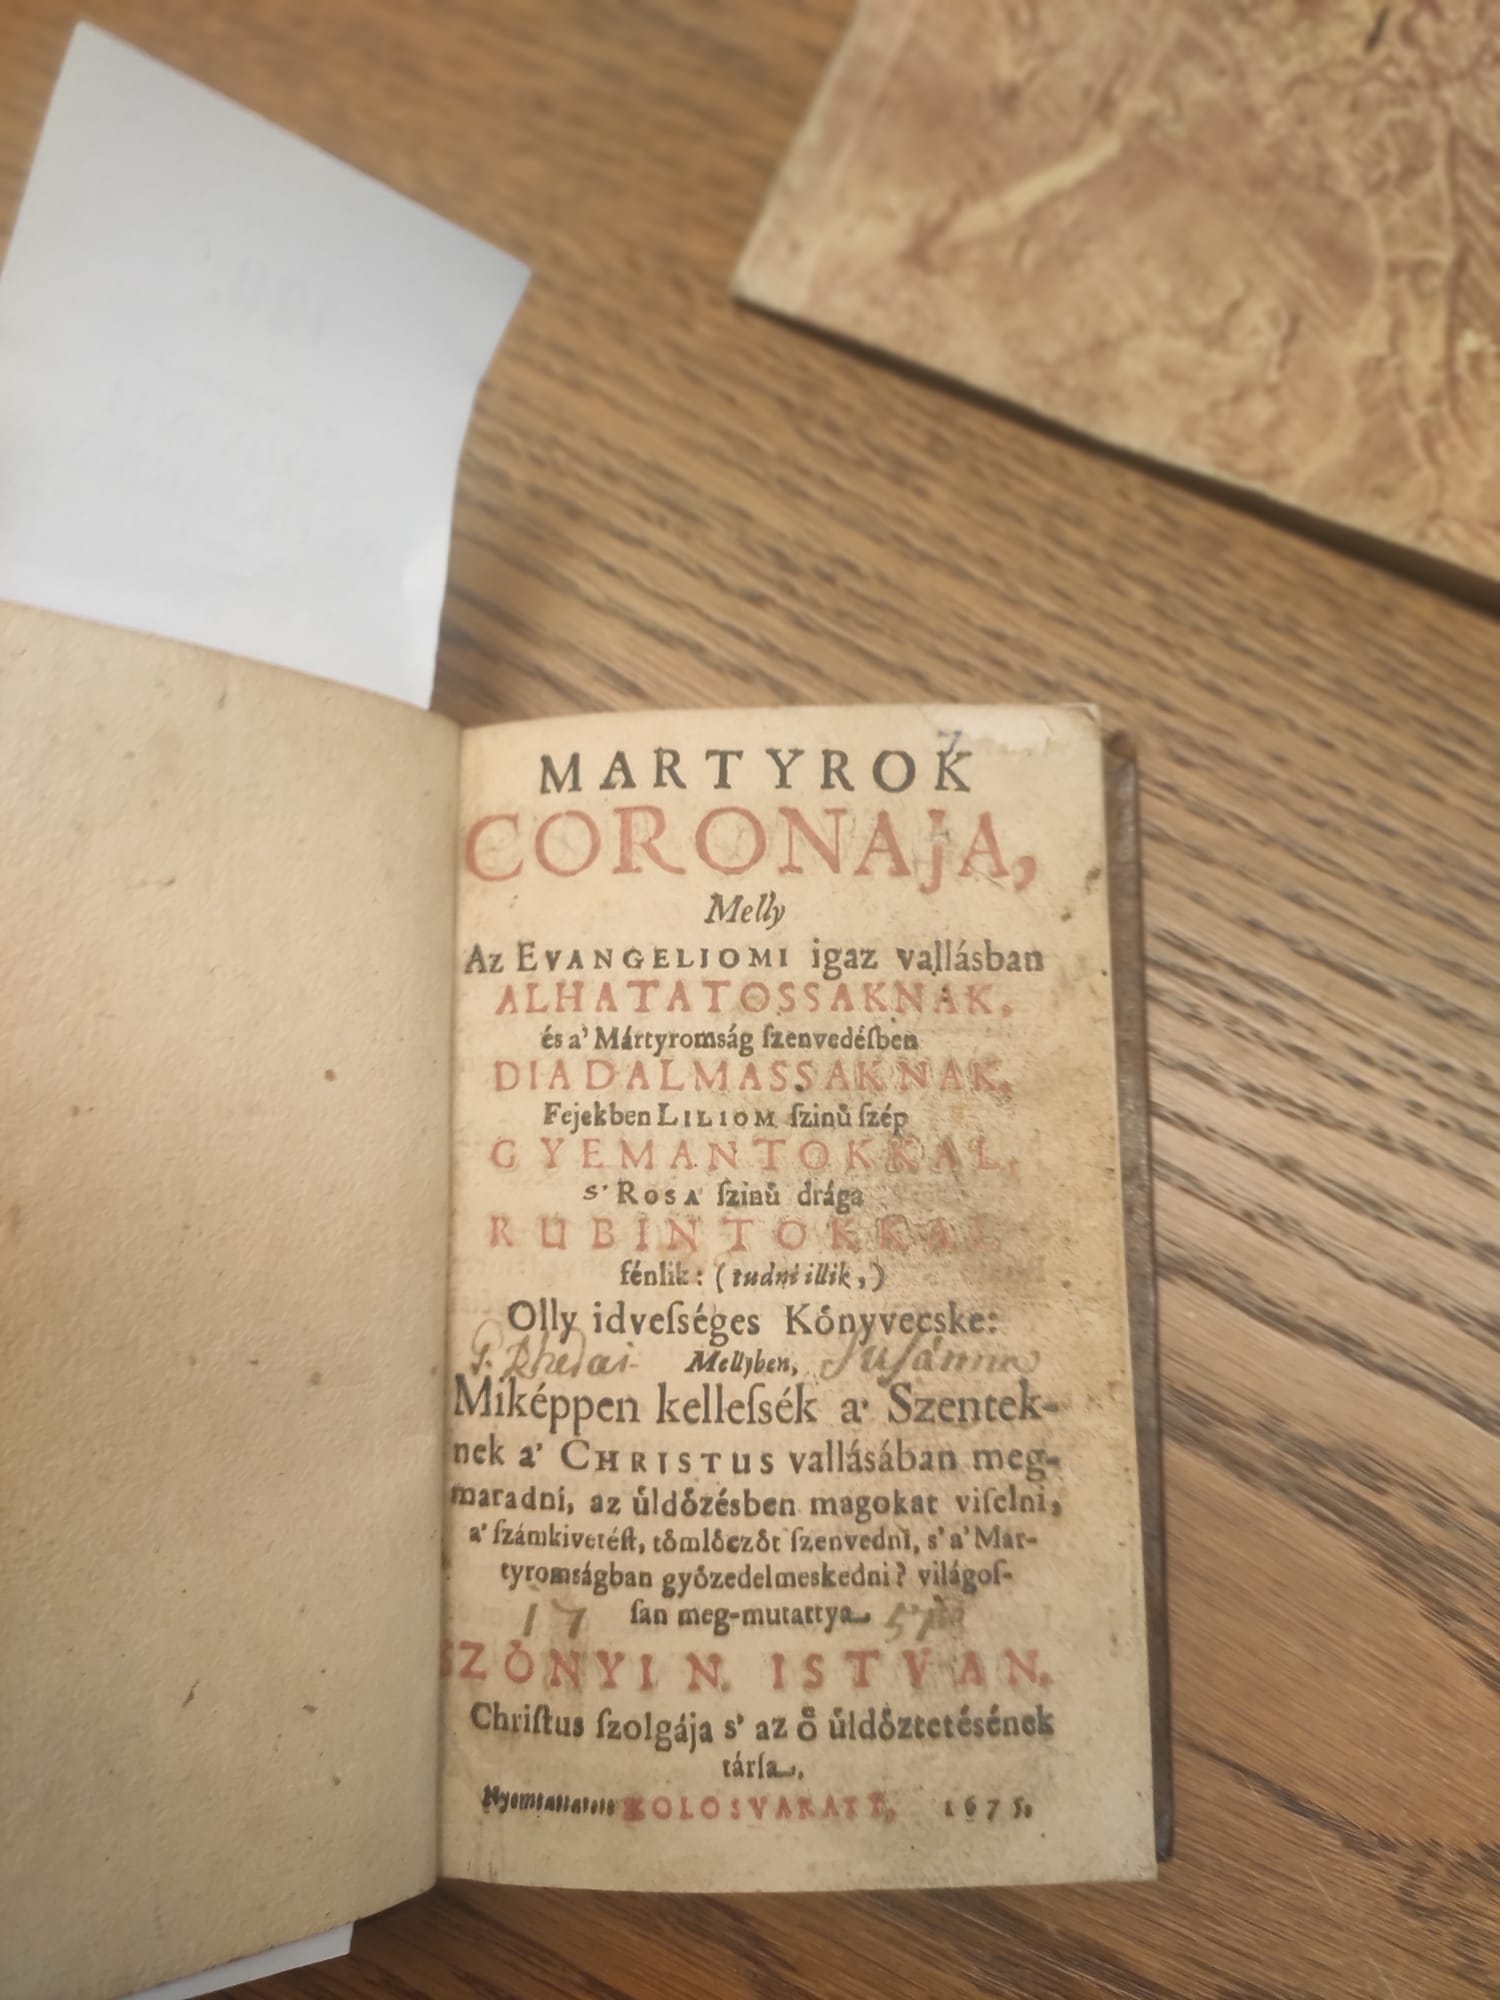 MARTYROK
CORONAJA,
Melly
Az EVANGELIOMI igaz vallásban
ALHATATOSSAKNAK,
és a' Mártyromság ſzenvedéſben
DIADALMASSAKNAK,
Fejekben LILIOM ſzinů ſzép
GYEMANTOKKAL,
s' ROSA ſzinů drága
RUBINTOKKAL
fénlik: (tudni illik,)
Olly idveſséges Kǒnyvecske:
P. Rhedai Mellyben, Suſánna
Miképpen kelleſsék a' Szentek-
nek a' CHRISTUS vallásában meg-
maradni, az ůldǒzésben magokat viſelni,
a' ſzámkivetéſt, tǒmlǒczǒt ſzenvedni, s' a' Mar-
tyromságban gyǒzedelmeskedni? világoſ-
17 ſan meg-mutattya. 57
SZǑNYI N. ISTVAN,
Chriſtus ſzolgája s' az ǒ ůldǒztetésének
tárſa.
Nyomtattatott KOLOSVARATT, 1675.